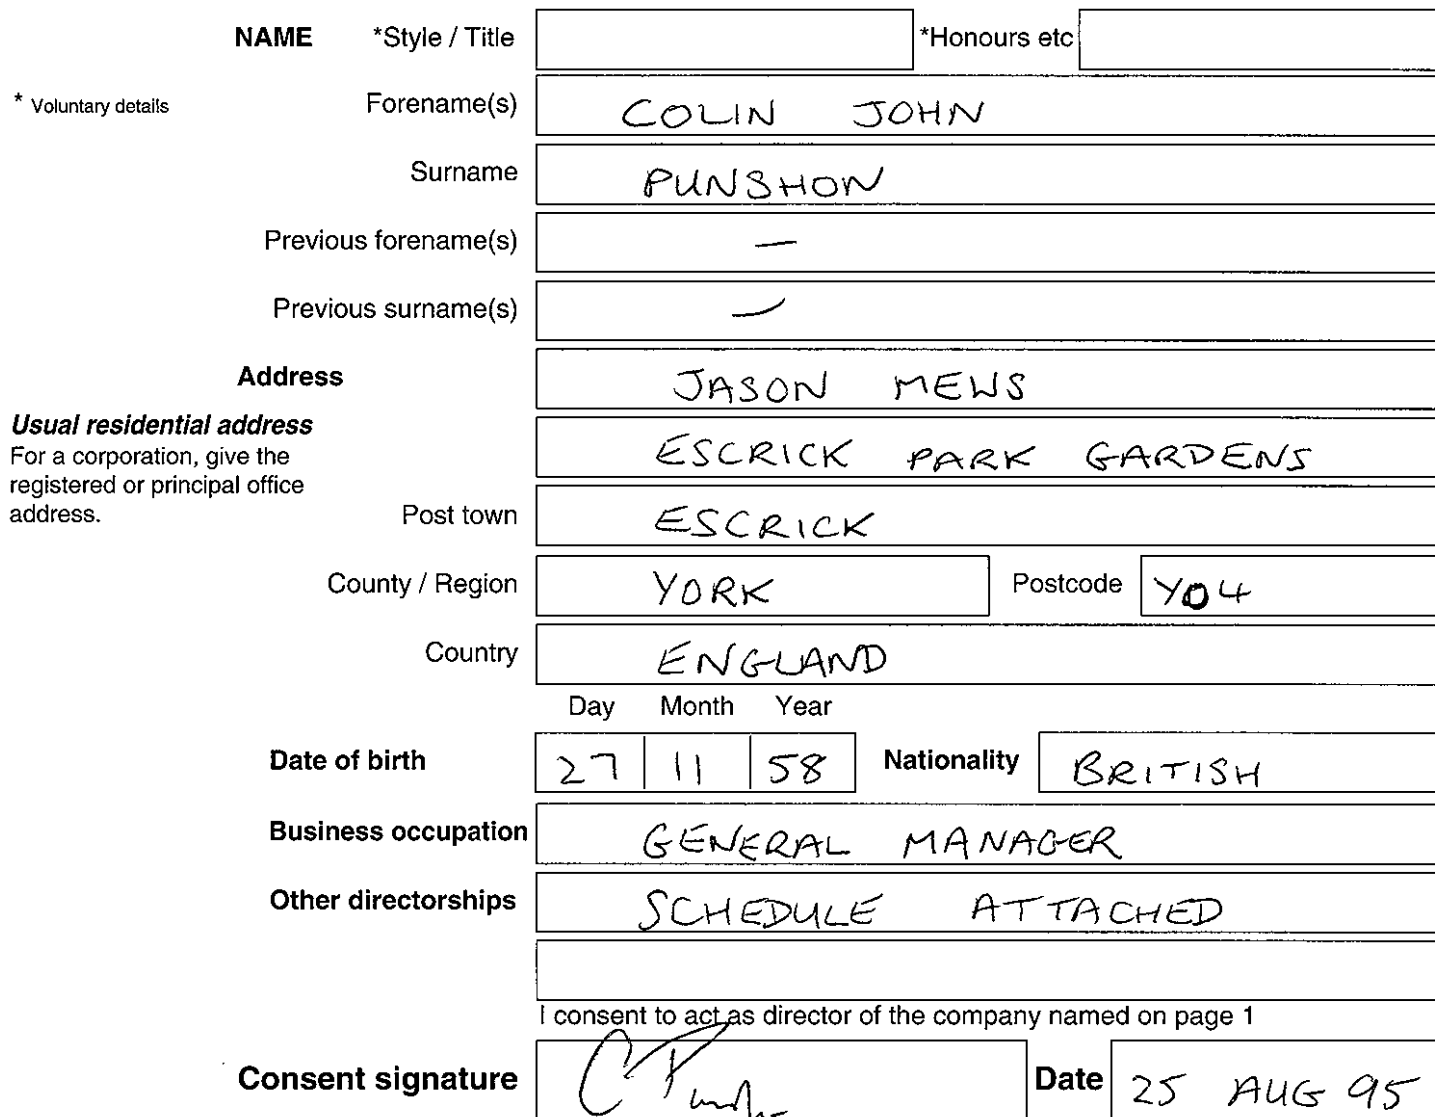 NAME *Style / Title *Honours etc
* Voluntary details Forename(s) COLIN JOHN
Surname PUNSHON
Previous forename(s) —
Previous surname(s) —
Address JASON MEWS
Usual residential address ESCRICK PARK GARDENS
For a corporation, give the
registered or principal office
address. Post town ESCRICK
County / Region YORK Postcode YO4
Country ENGLAND
Day Month Year
Date of birth 27 11 58 Nationality BRITISH
Business occupation GENERAL MANAGER
Other directorships SCHEDULE ATTACHED
I consent to act as director of the company named on page 1
Consent signature Date 25 AUG 95